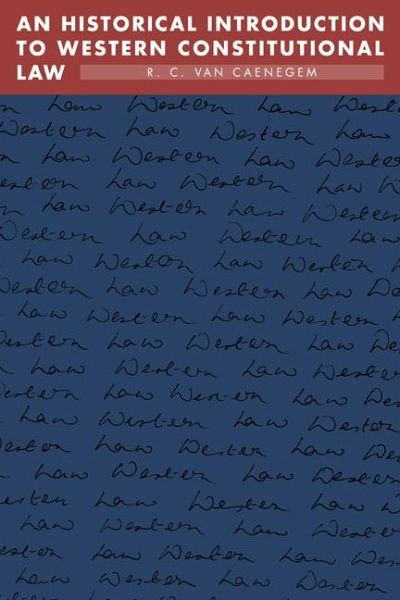 AN HISTORICAL INTRODUCTION
TO WESTERN CONSTITUTIONAL
LAW R. C. VAN CAENEGEM
Law Western Law
Western Law Western
Law Western Law Western
Western Law Western Law W
Law Western Law Western
Western Law Western Law
Law Western Law Western
Western Law Western Law Wes
Law Western Law Western
Western Law Western Law Wes
Law Western Law Western
Western Law Western Law Wes
Law Western Law Western
Western Law Western Law
Law Western Law Western
Western Law Western Law W
Law Western Law Western
Western Law Western Law
Law Western Law Western